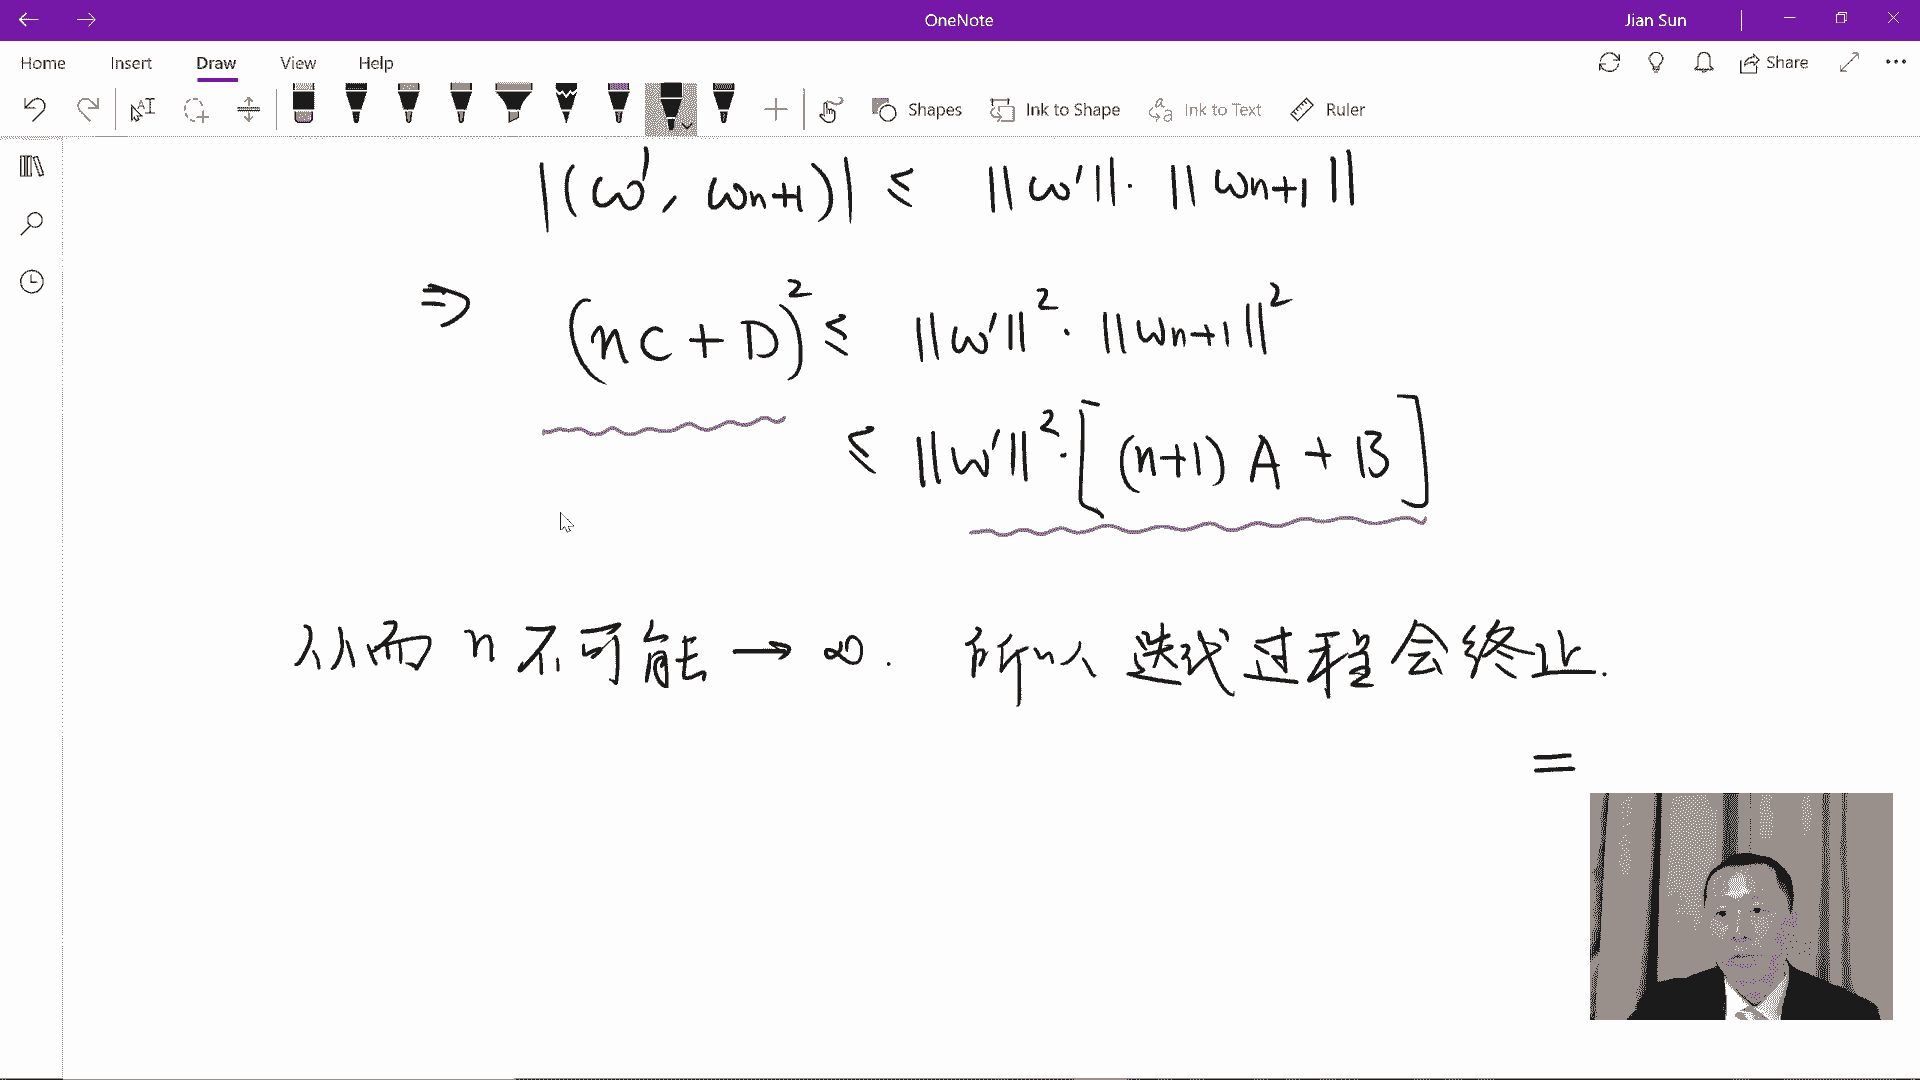 OneNote
Jian Sun
Home Insert Draw View Help
Share
Shapes Ink to Shape Ink to Text Ruler
|(ω', ωn+1)| ≤ ||ω'||· ||ωn+1||
⇒ (nC + D)² ≤ ||ω'||²· ||ωn+1||²
≤ ||ω'||²·[(n+1) A + B]
从而 n 不可能 → ∞. 所以 迭代过程会终止.
=